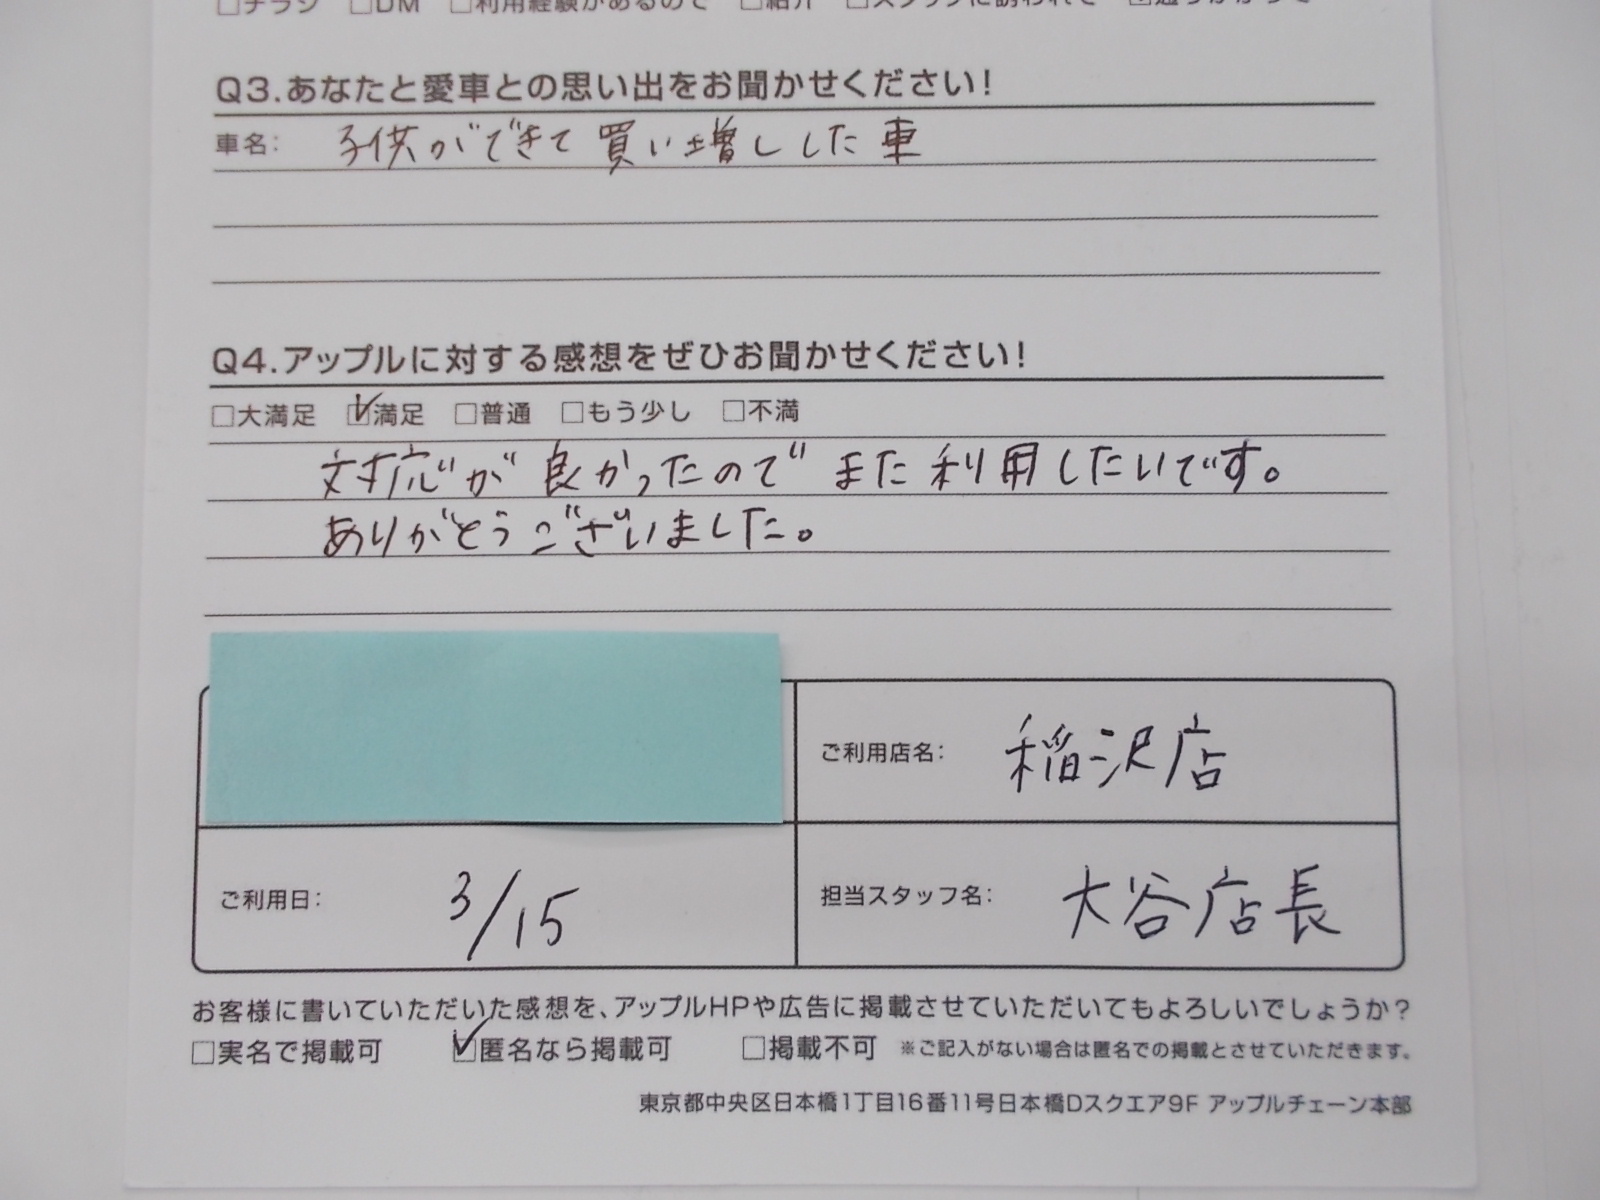 □チラシ □DM □利用経験があるので □紹介 □スタッフに誘われて ☑通りがかって
Q3.あなたと愛車との思い出をお聞かせください!
車名: 子供ができて買い増しした車
Q4.アップルに対する感想をぜひお聞かせください!
□大満足 ☑満足 □普通 □もう少し □不満
対応が良かったのでまた利用したいです。
ありがとうございました。
ご利用店名: 稲沢店
ご利用日: 3/15 担当スタッフ名: 大谷店長
お客様に書いていただいた感想を、アップルHPや広告に掲載させていただいてもよろしいでしょうか?
□実名で掲載可 ☑匿名なら掲載可 □掲載不可 ※ご記入がない場合は匿名での掲載とさせていただきます。
東京都中央区日本橋1丁目16番11号日本橋Dスクエア9F アップルチェーン本部